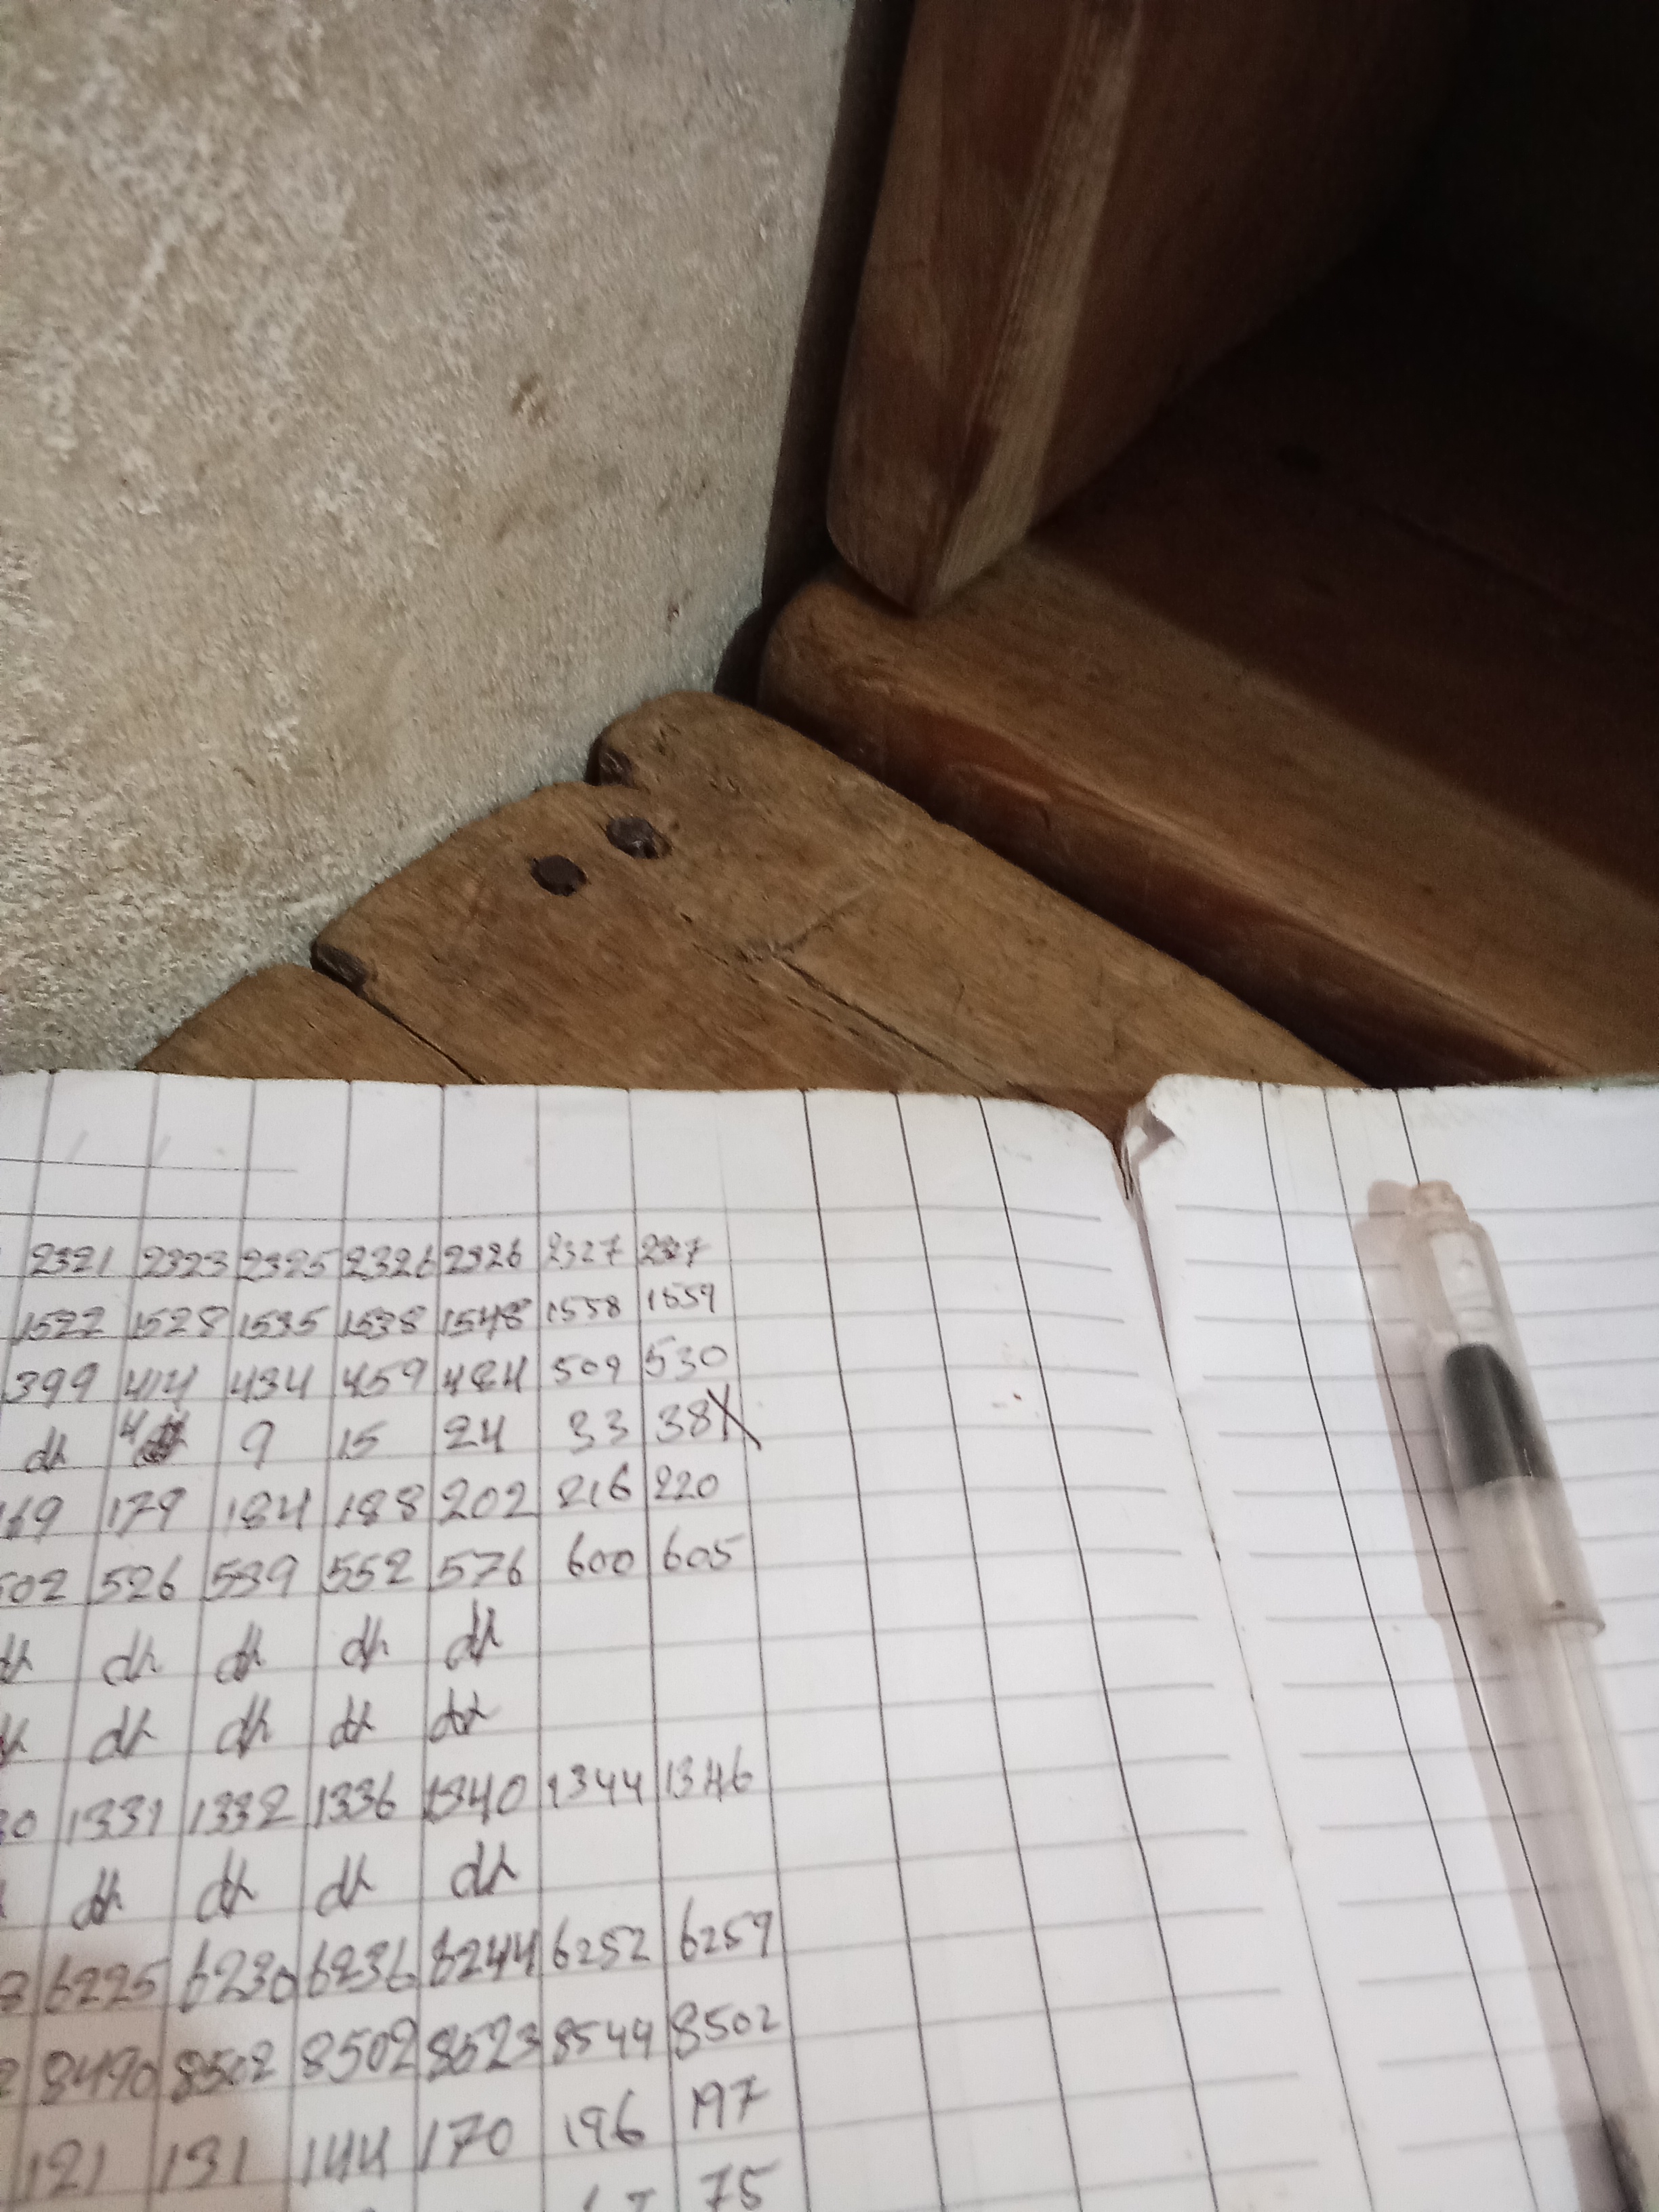 2321 2323 2325 2326 2326 2327 2327
1522 1528 1535 1538 1548 1558 1559
399 414 434 459 484 509 530
dh 4 9 15 24 33 38X
169 179 184 188 202 216 220
502 526 539 552 576 600 605
dh dh dh dh dh
dh dh dh dh dh
30 1331 1332 1336 1340 1344 1346
dh dh dh dh
6225 6230 6236 6244 6252 6259
8490 8502 8502 8523 8544 8502
121 131 144 170 196 197
75